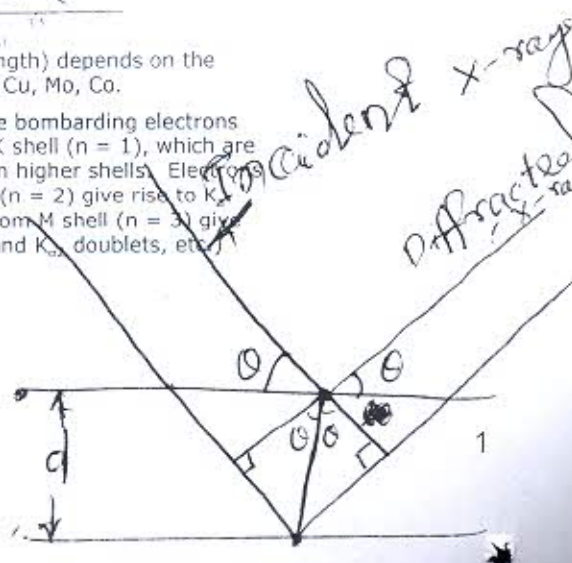 ngth) depends on the
Cu, Mo, Co.
e bombarding electrons
K shell (n = 1), which are
n higher shells. Electrons
(n = 2) give rise to K
om M shell (n = 3) give
and K doublets, etc.)
Incident x-rays
Diffracted
x-ra
θ θ
θ θ
d
1